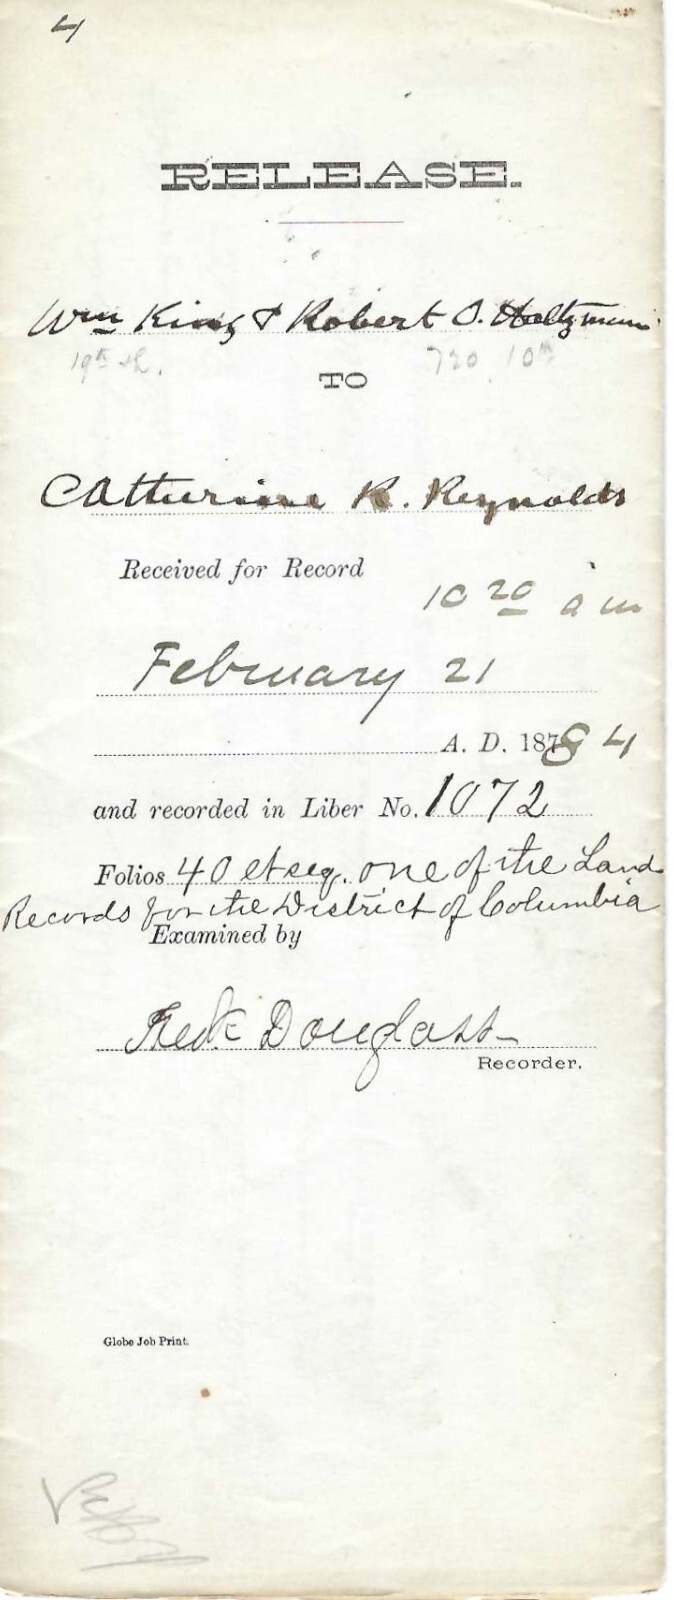 4
RELEASE.
Wm King & Robert O. Holtzman
19th st. 720 10th
TO
Catherine K. Reynolds
Received for Record
10 20 a m
February 21
A. D. 1884
and recorded in Liber No. 1072
Folios 40 et seq. one of the Land
Records for the District of Columbia
Examined by
Fredk Douglass
Recorder.
Globe Job Print.